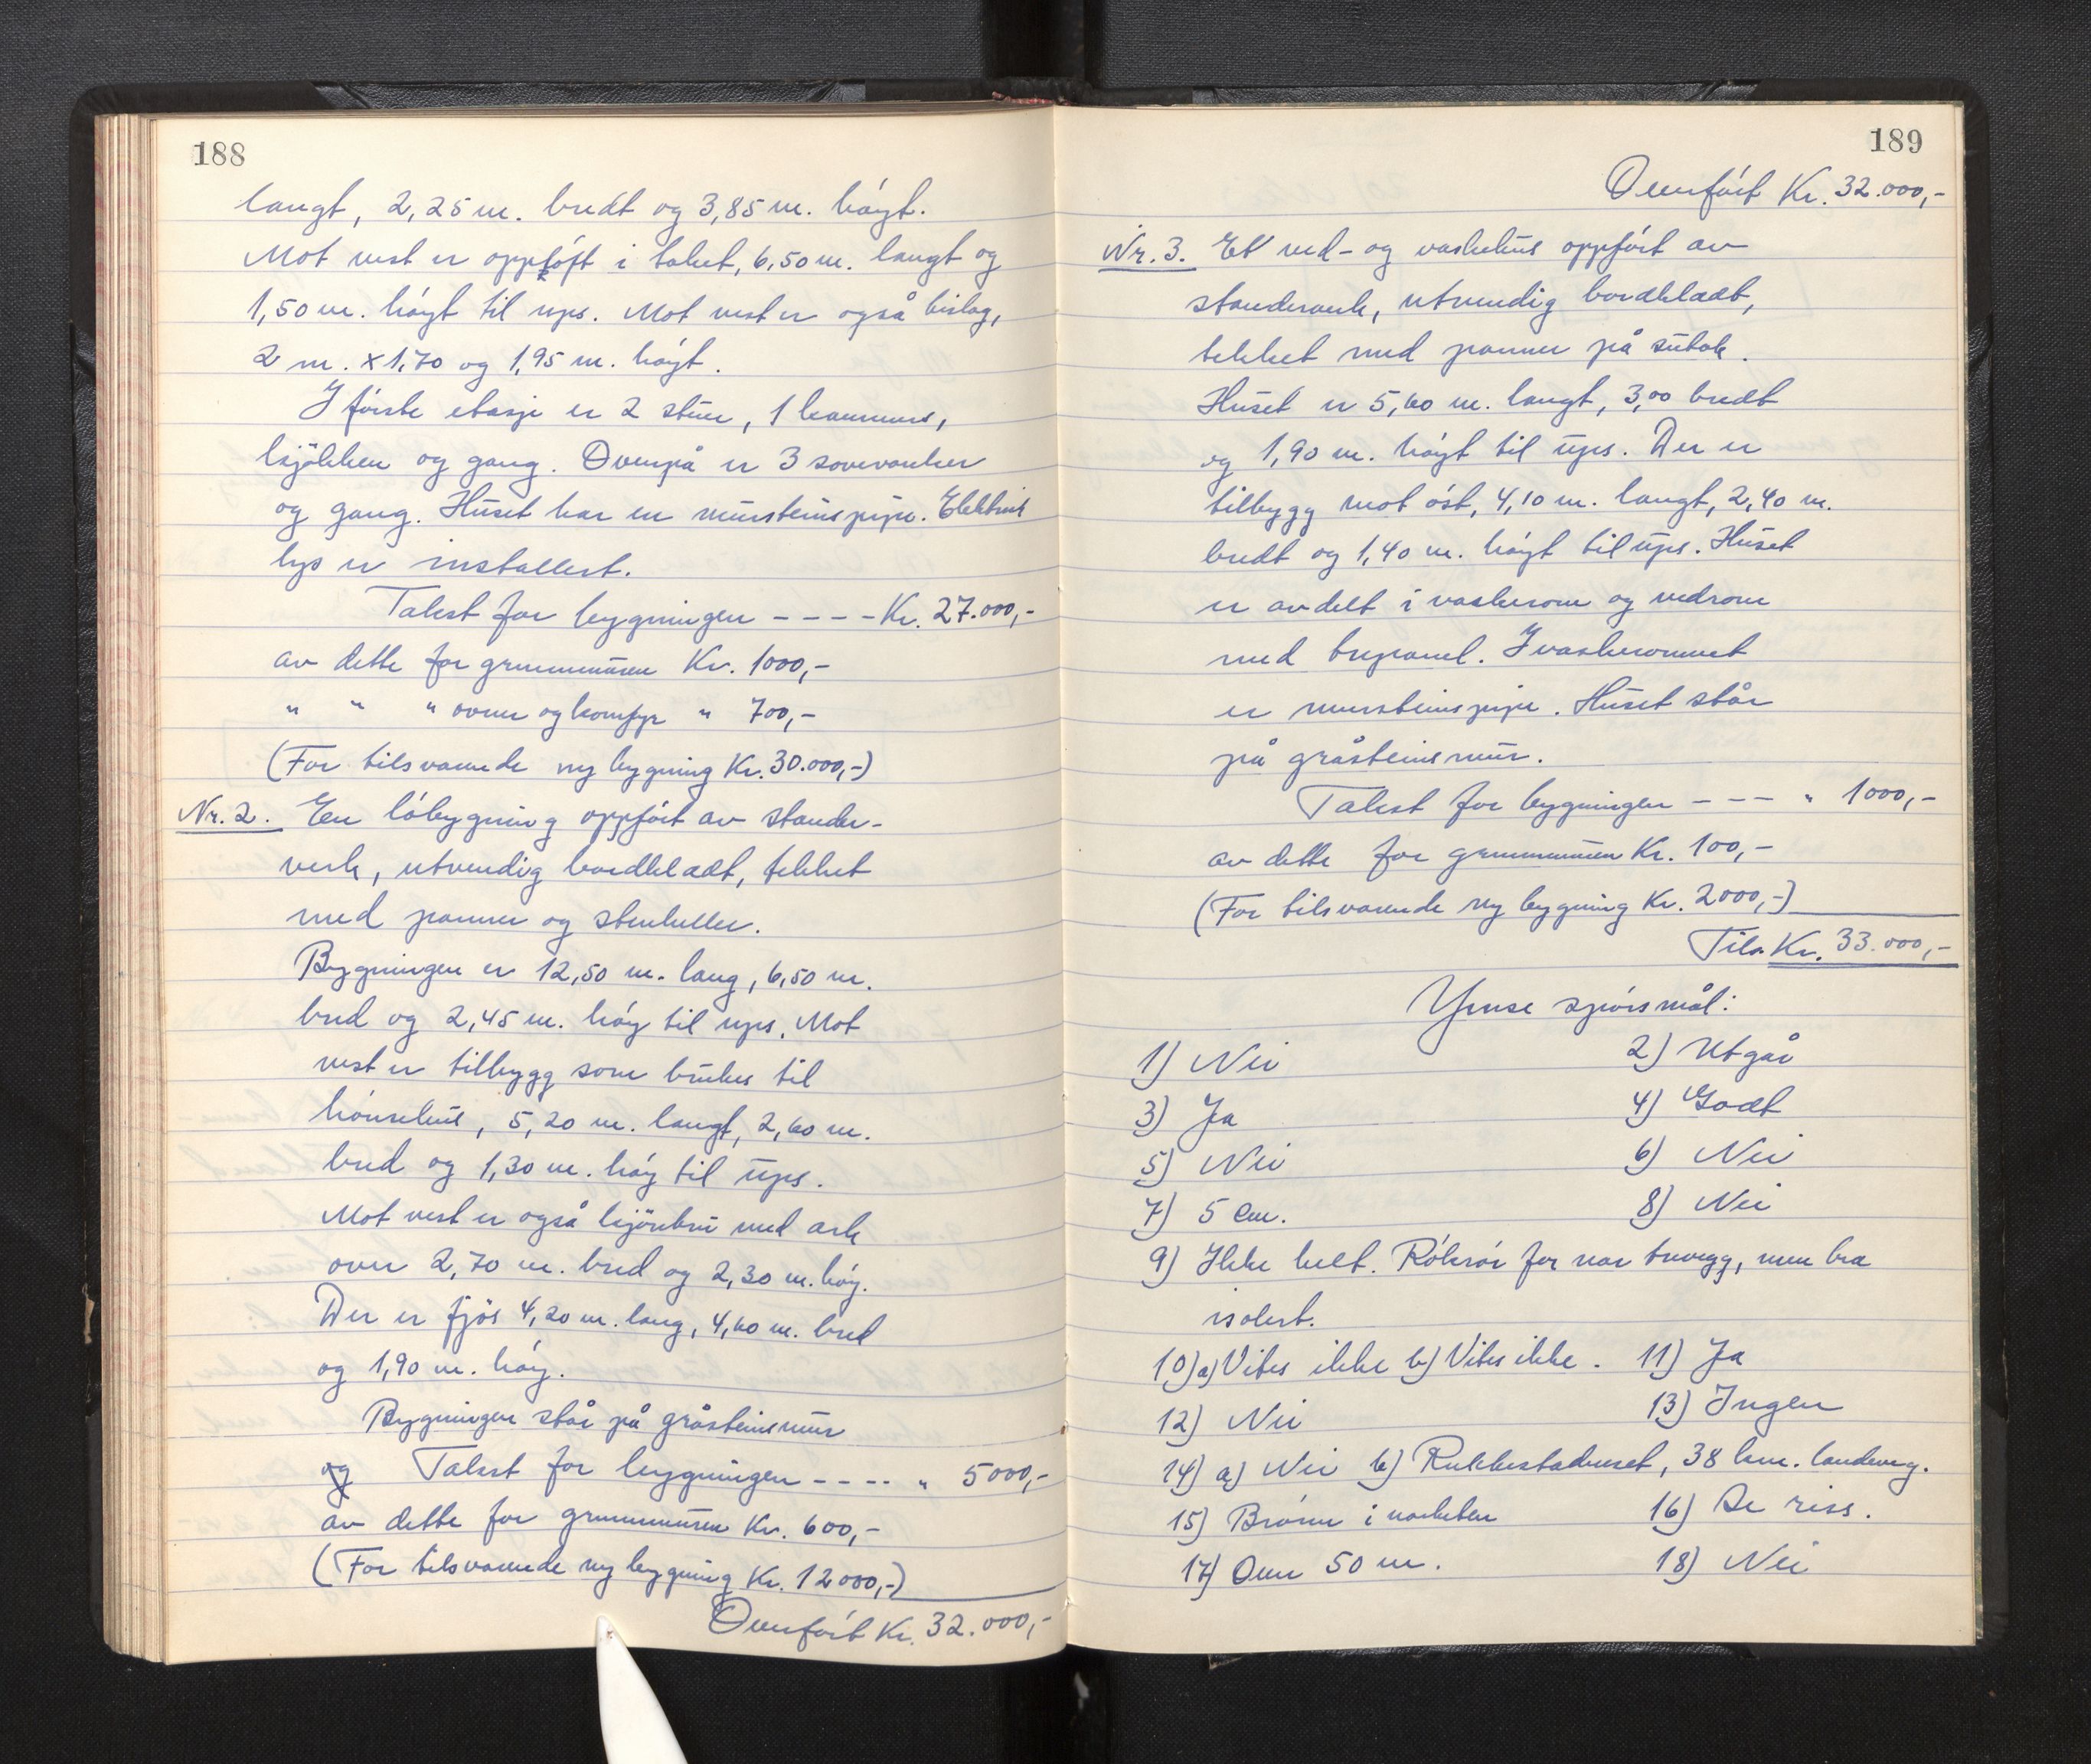 188
langt, 2,25 m. bredt og 3,85 m. høgt.
Mot vest er oppløft i taket, 6,50 m. langt og
1,50 m. høgt til ups. Mot vest er også bislag,
2 m. x 1,70 og 1,95 m. høgt.
I første etasje er 2 stuer, 1 kammers,
kjøkken og gang. Ovenpå er 3 soverom
og gang. Huset har en mursteinspipe. Elektrisk
lys er installert.
Takst for bygningen - - - - Kr. 27.000,-
av dette for grunnmuren Kr. 1000,-
" " " ovner og komfyr " 700,-
(For tilsvarende ny bygning Kr. 30.000,-)
Nr. 2. En løbygning oppført av stender-
verk, utvendig bordkledt, tekket
med panner og stenheller.
Bygningen er 12,50 m. lang, 6,50 m.
bred og 2,45 m. høg til ups. Mot
vest er tilbygg som brukes til
hønsehus, 5,20 m. langt, 2,60 m.
bred og 1,30 m. høg til ups.
Mot vest er også kjørebru med ark
over 2,70 m. bred og 2,30 m. høg.
Der er fjøs 4,20 m. lang, 4,60 m. bred
og 1,90 m. høg.
Bygningen står på gråsteinsmur
og Takst for bygningen - - - - " 5000,-
av dette for grunnmuren Kr. 600,-
(For tilsvarende ny bygning Kr. 12000,-)
Overført Kr. 32.000,-
189
Overført Kr. 32.000,-
Nr. 3. Et ved- og vaskehus oppført av
stenderverk, utvendig bordkledt,
tekket med panner på sutak.
Huset er 5,60 m. langt, 3,00 bredt
og 1,90 m. høgt til ups. Der er
tilbygg mot øst, 4,10 m. langt, 2,40 m.
bredt og 1,40 m. høgt til ups. Huset
er avdelt i vaskerom og vedrom
med trepanel. I vaskerommet
er mursteinspipe. Huset står
på gråsteinsmur.
Takst for bygningen - - - " 1000,-
av dette for grunnmuren Kr. 100,-
(For tilsvarende ny bygning Kr. 2000,-)
Tils. Kr. 33.000,-
Ymse spørsmål:
1) Nei 2) Utgår
3) Ja 4) Godt
5) Nei 6) Nei
7) 5 cm. 8) Nei
9) Ikke helt. Røkrør for nær trevegg, men bra
isolert.
10) a) Vites ikke b) Vites ikke. 11) Ja
12) Nei 13) Ingen
14) a) Nei b) Rukkestadneset, 38 km. landeveg.
15) Brønn i nærheten 16) Se riss.
17) Over 50 m. 18) Nei